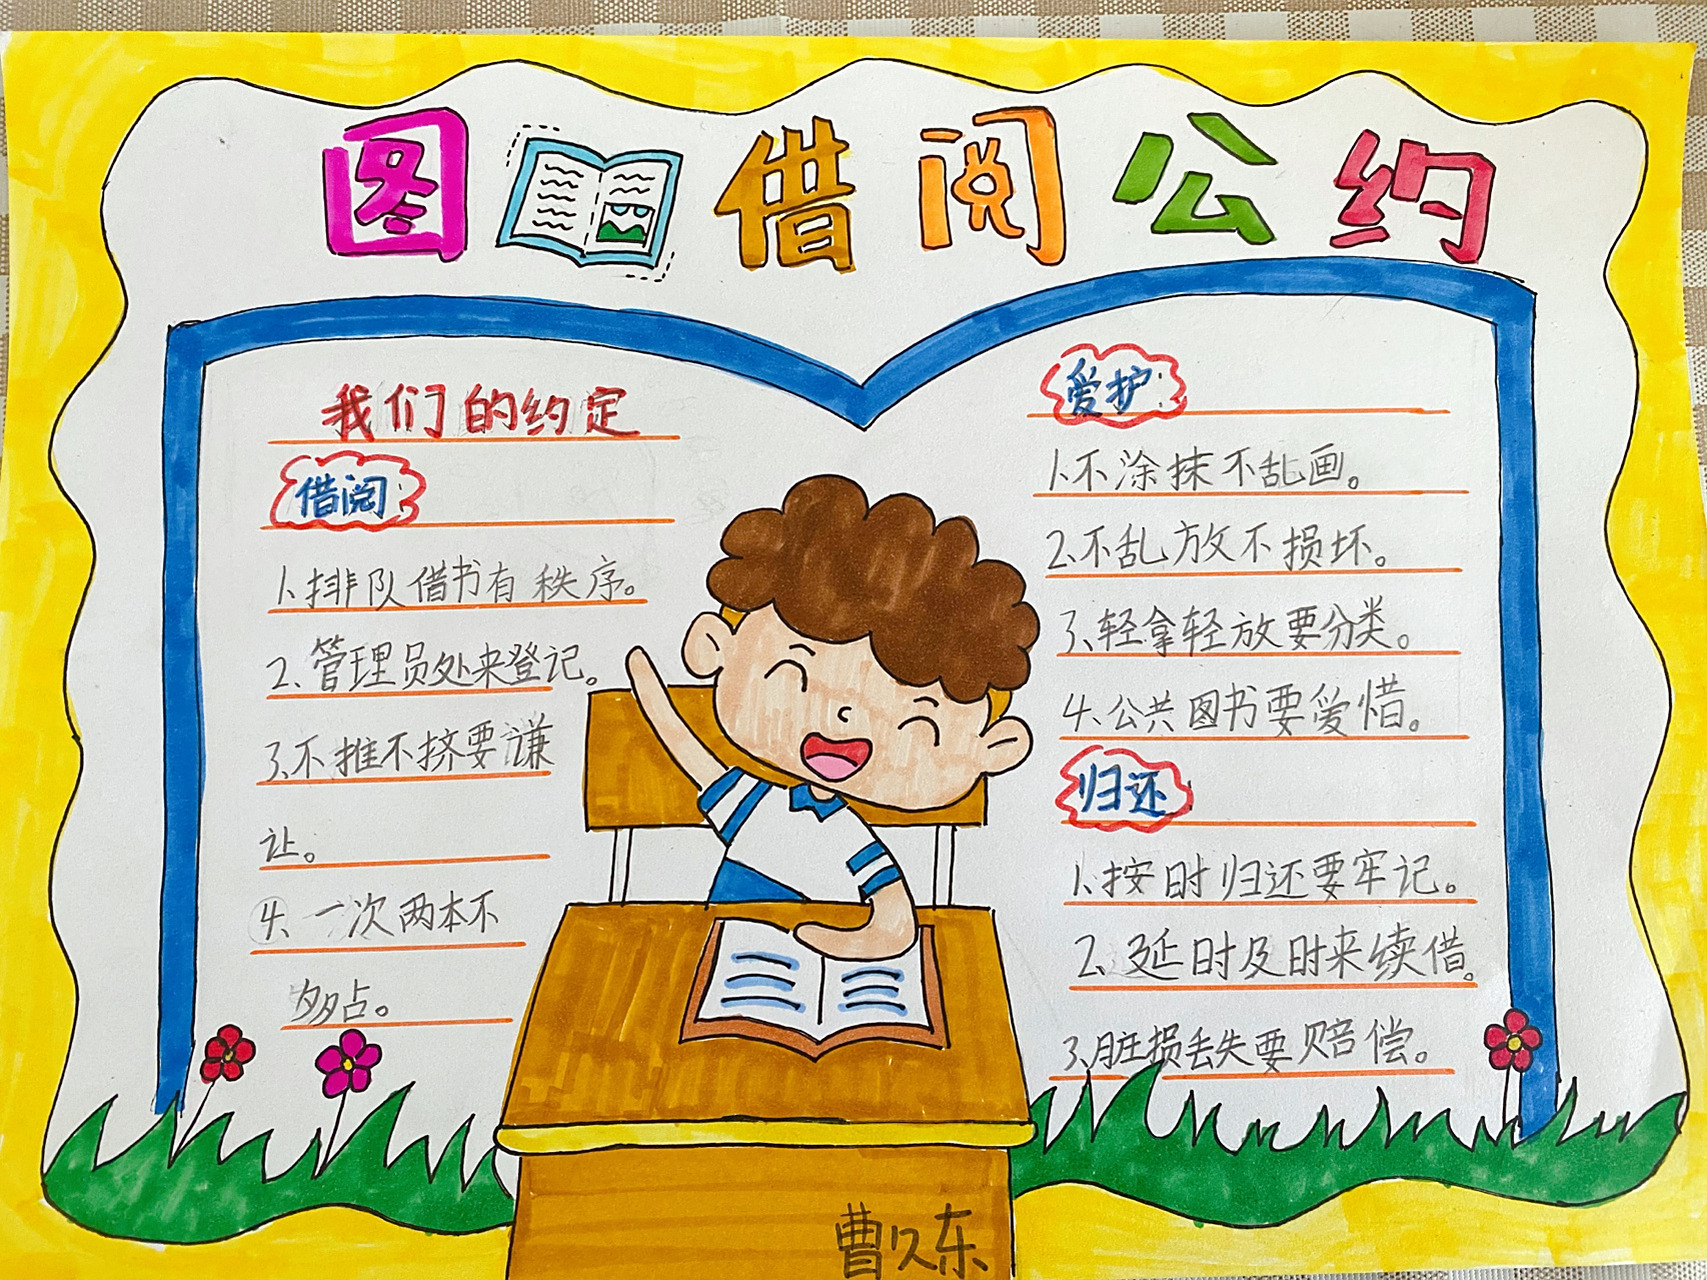 图借阅公约
我们的约定
借阅
1.排队借书有秩序。
2、管理员处来登记。
3、不推不挤要谦
让。
4、一次两本不
多占。
爱护
1.不涂抹不乱画。
2.不乱放不损坏。
3、轻拿轻放要分类。
4、公共图书要爱惜。
归还
1.按时归还要牢记。
2、延时及时来续借。
3、脏损丢失要赔偿。
曹久东